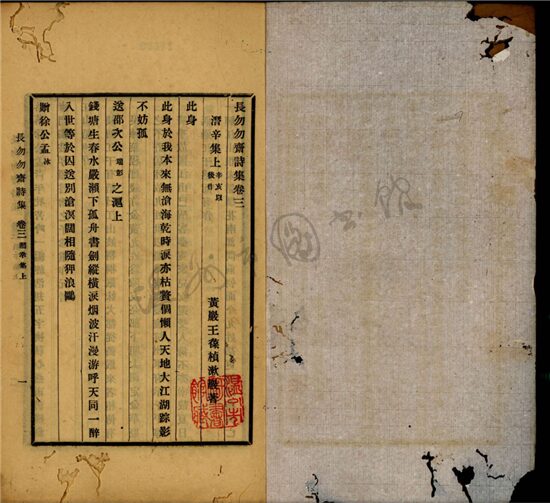 長勿勿齋詩集卷三
潛辛集上 辛亥迄
黃巖王葆楨漱巖著
此身
此身於我本來無滄海乾時淚亦枯贅個懶人天地大江湖踪影
不妨孤
送邵次公瑞彭之滬上
錢塘生春水嚴瀨下孤舟書劍縱橫淚烟波汗漫游呼天同一醉
入世等於囚送別滄溟闊相隨狎浪鷗
贈徐公孟冰
長勿勿齋詩集 卷三 潛辛集上